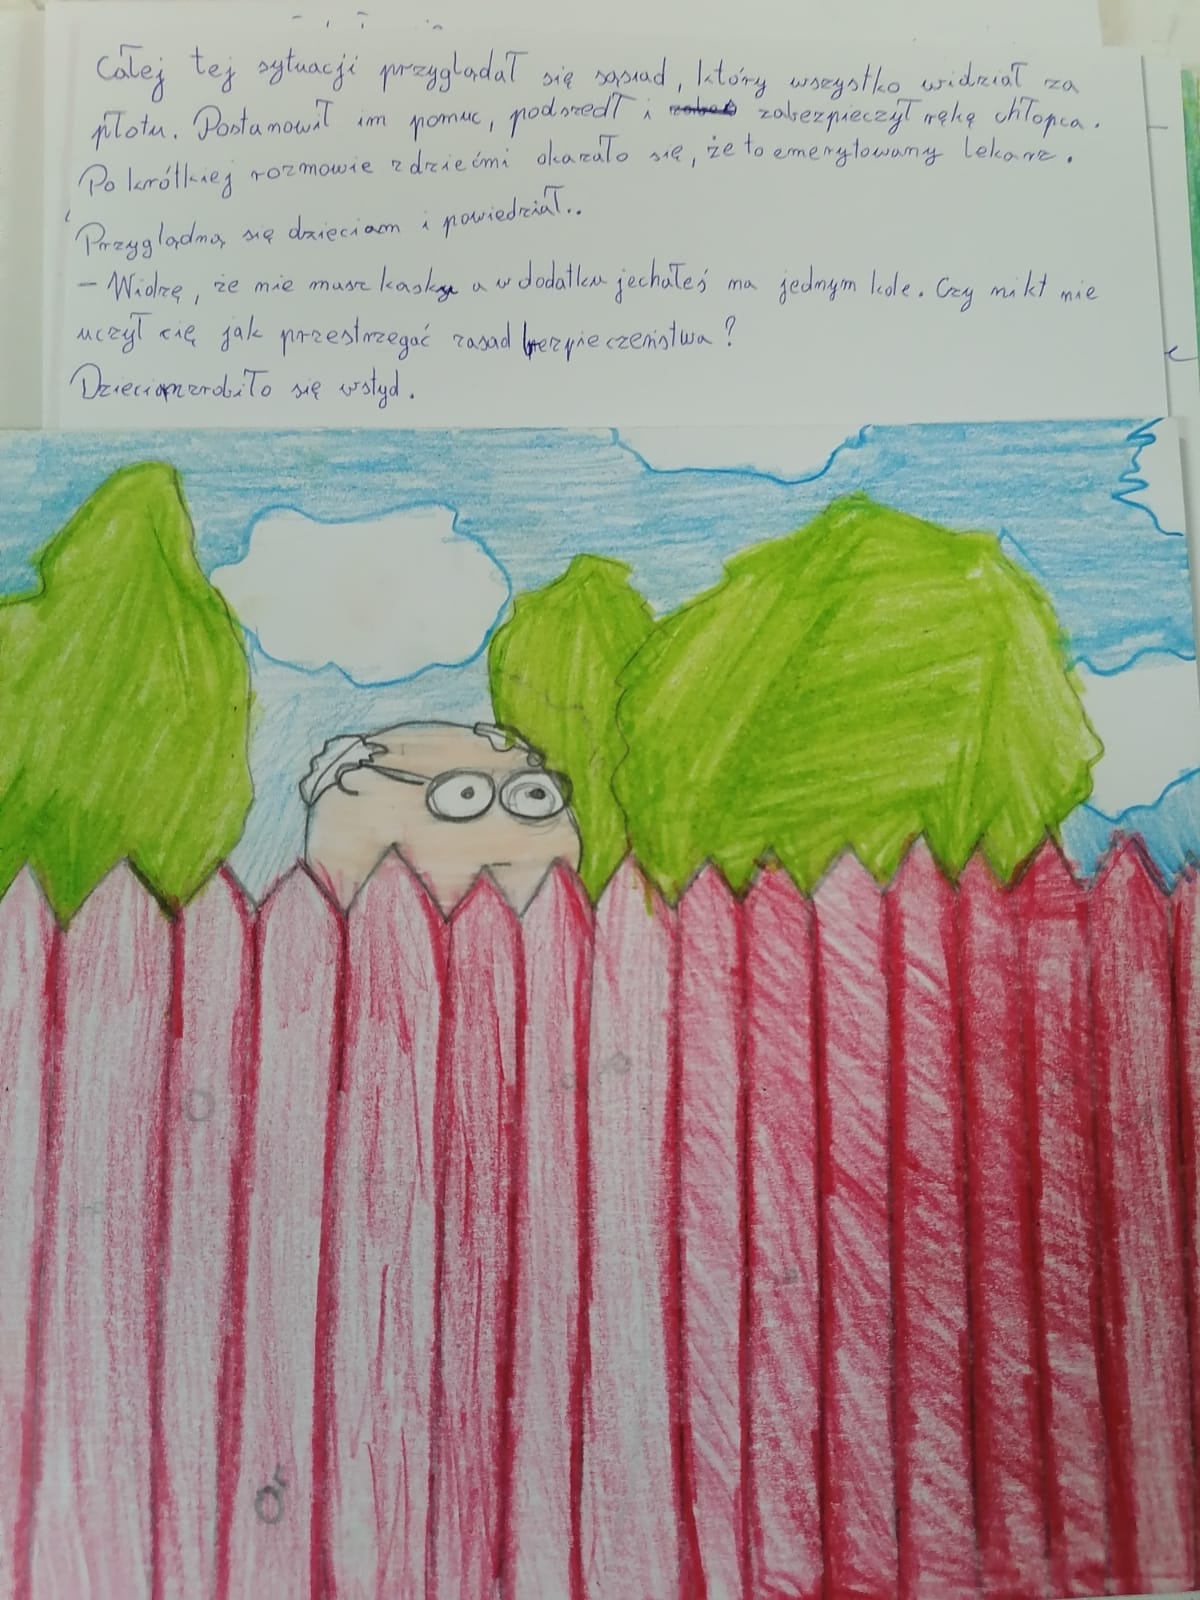 Całej tej sytuacji przyglądał się sąsiad, który wszystko widział za
płotu. Postanowił im pomuc, podszedł i zabezpieczył rękę chłopca.
Po krótkiej rozmowie z dziećmi okazało się, że to emerytowany lekarz.
Przyglądną się dzieciom i powiedział..
- Widzę, że nie masz kasku a w dodatku jechałeś na jednym kole. Czy nikt nie
uczył cię jak przestrzegać zasad bezpieczeństwa?
Dzieciom zrobiło się wstyd.